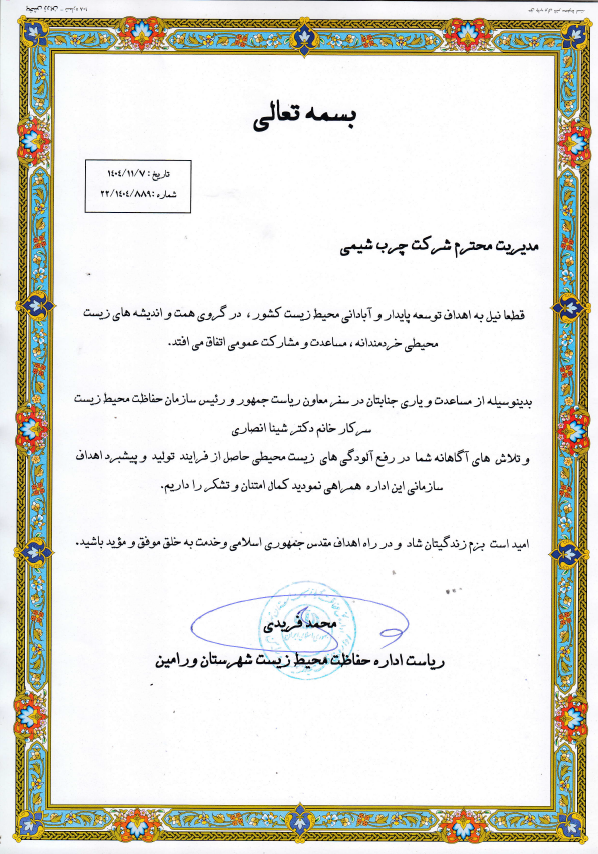 بسمه تعالی
تاریخ : ۱۴۰۴/۱۱/۷
شماره : ۲۲/۱۴۰۴/۸۸۹
مدیریت محترم شرکت چرب شیمی
قطعا نیل به اهداف توسعه پایدار و آبادانی محیط زیست کشور ، در گروی همت و اندیشه های زیست
محیطی خردمندانه ، مساعدت و مشارکت عمومی اتفاق می افتد.
بدینوسیله از مساعدت و یاری جنابتان در سفر معاون ریاست جمهور و رئیس سازمان حفاظت محیط زیست
سرکار خانم دکتر شینا انصاری
و تلاش های آگاهانه شما در رفع آلودگی های زیست محیطی حاصل از فرایند تولید و پیشبرد اهداف
سازمانی این اداره همراهی نمودید کمال امتنان و تشکر را داریم.
امید است بزم زندگیتان شاد و در راه اهداف مقدس جمهوری اسلامی وخدمت به خلق موفق و مؤید باشید.
محمد فریدی
ریاست اداره حفاظت محیط زیست شهرستان ورامین